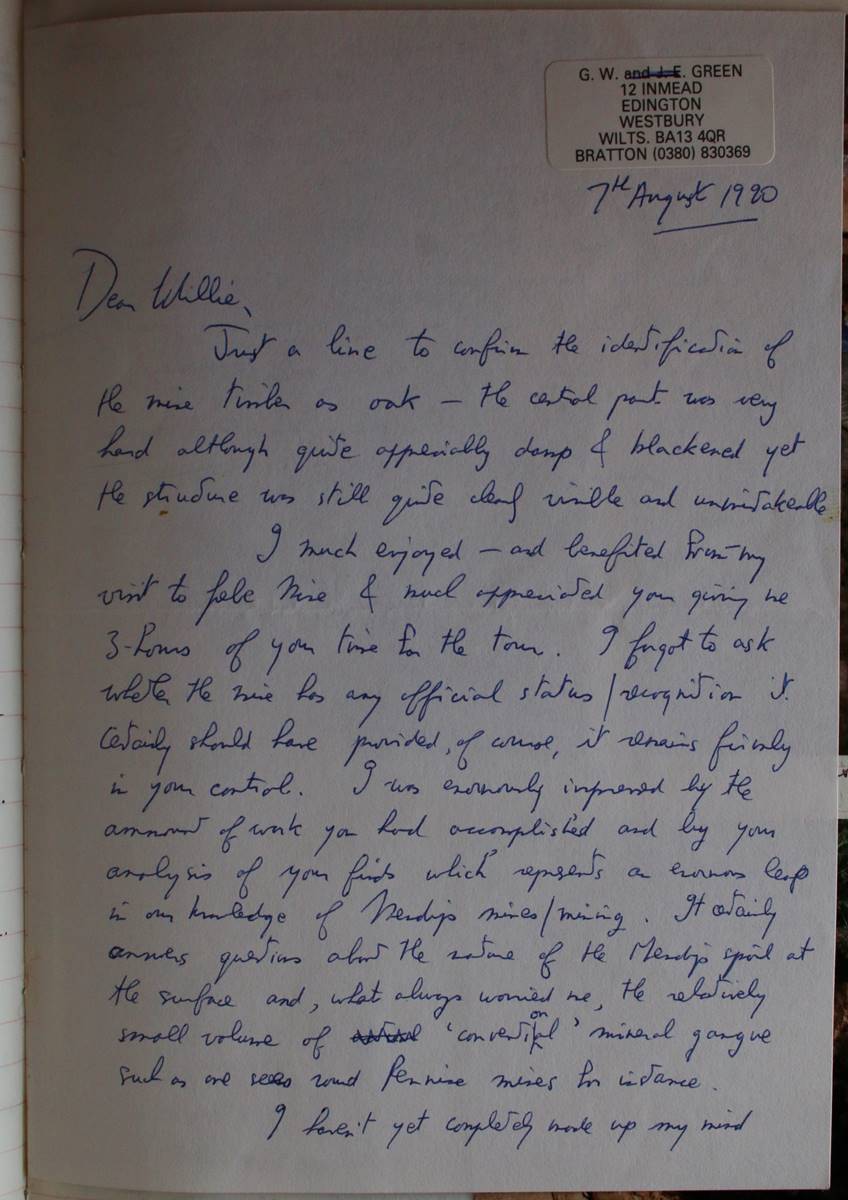 G. W. and J. E. GREEN
12 INMEAD
EDINGTON
WESTBURY
WILTS. BA13 4QR
BRATTON (0380) 830369
7th August 1990
Dear Willie,
Just a line to confirm the identification of
the mine timber as oak – the central part was very
hard although quite appreciably damp & blackened yet
the structure was still quite clearly visible and unmistakeable
I much enjoyed – and benefited from – my
visit to Mine & much appreciated your giving me
3-hours of your time for the tour. I forgot to ask
whether the mine has any official status/recognition it
certainly should have provided, of course, it remains firmly
in your control. I was enormously impressed by the
amount of work you had accomplished and by your
analysis of your finds which represents an enormous leap
in our knowledge of Mendips mines/mining. It certainly
answers questions about the nature of the Mendips spoil at
the surface and, what always worried me, the relatively
small volume of 'conventional' mineral gangue
such as one sees round Pennine mines for instance.
I haven't yet completely made up my mind